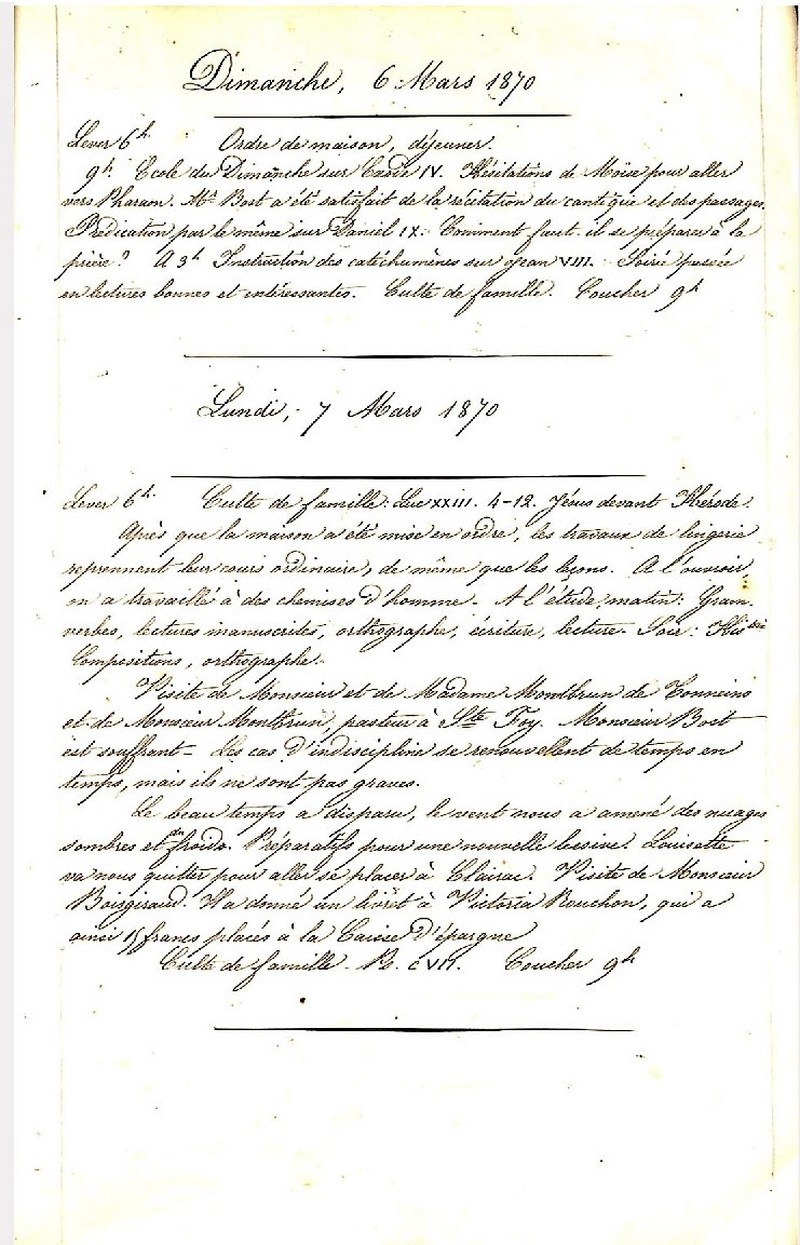 Dimanche, 6 Mars 1870
Lever 6h. Ordre de maison, déjeuner.
9h Ecole du Dimanche sur Exode IV. Hésitations de Moïse pour aller
vers Pharaon. Mr Bost a été satisfait de la récitation du cantique et des passages.
Prédication par le même sur Daniel IX: Comment faut-il se préparer à la
prière? A 3h Instruction des catéchumènes sur Jean VIII. Soirée passée
en lectures bonnes et intéressantes. Culte de famille. Coucher 9h
Lundi, 7 Mars 1870
Lever 6h. Culte de famille: Luc XXIII. 4-12. Jésus devant Hérode.
Après que la maison a été mise en ordre, les travaux de lingerie
reprennent leur cours ordinaire, de même que les leçons. A l'ouvroir,
on a travaillé à des chemises d'homme. A l'étude, matin: Gram.
verbes, lectures manuscrites, orthographe, écriture, lecture. Soir: Histre
Compositions, orthographe.
Visite de Monsieur et de Madame Montbrun de Tonneins
et de Monsieur Montbrun, pasteur à Ste Foy. Monsieur Bost
est souffrant. Les cas d'indiscipline se renouvellent de temps en
temps, mais ils ne sont pas graves.
Le beau temps a disparu, le vent nous a amené des nuages
sombres et froids. Préparatifs pour une nouvelle lessive. Louisette
va nous quitter pour aller se placer à Clairac. Visite de Monsieur
Boisgiraud. Il a donné un livret à Victoria Rouchon, qui a
ainsi 15 francs placés à la Caisse d'épargne
Culte de famille. Ps. CVII. Coucher 9h